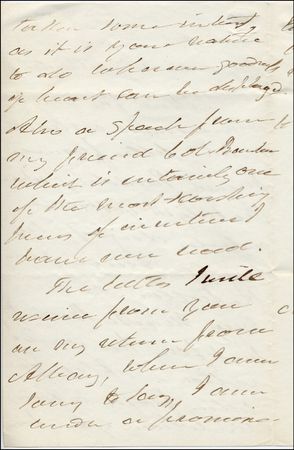 taken some interest
as it is your nature
to do when ever goodness
of heart can be displayed
Also a Speech from
my friend Col
which is entirely one
of the most touching
of
have ever read.
The letter I will
receive from you
on my return from
Albany, where I am
sorry to say, I am
under a promise